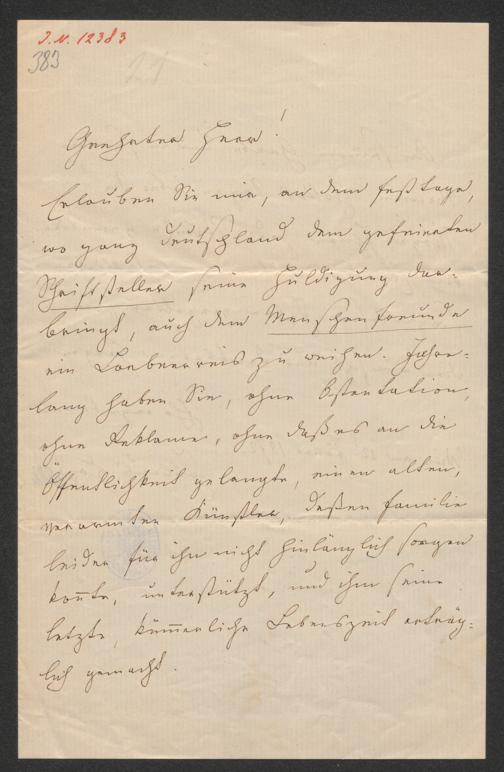 J.N. 12383
383
Geehrter Herr!
Erlauben Sie mir, an dem Festtage,
wo ganz Deutschland dem gefeierten
Schriftsteller seine Huldigung dar-
bringt, auch dem Menschenfreunde
ein Lorbeerreis zu weihen. Jahre-
lang haben Sie, ohne Ostentation,
ohne Reklame, ohne daß es an die
Öffentlichkeit gelangte, einen alten,
verarmten Künstler, deßen Familie
leider für ihn nicht hinlänglich sorgen
kon̄te, unterstützt, und ihm seine
letzte, küm̄erliche Lebenszeit erträg-
lich gemacht.